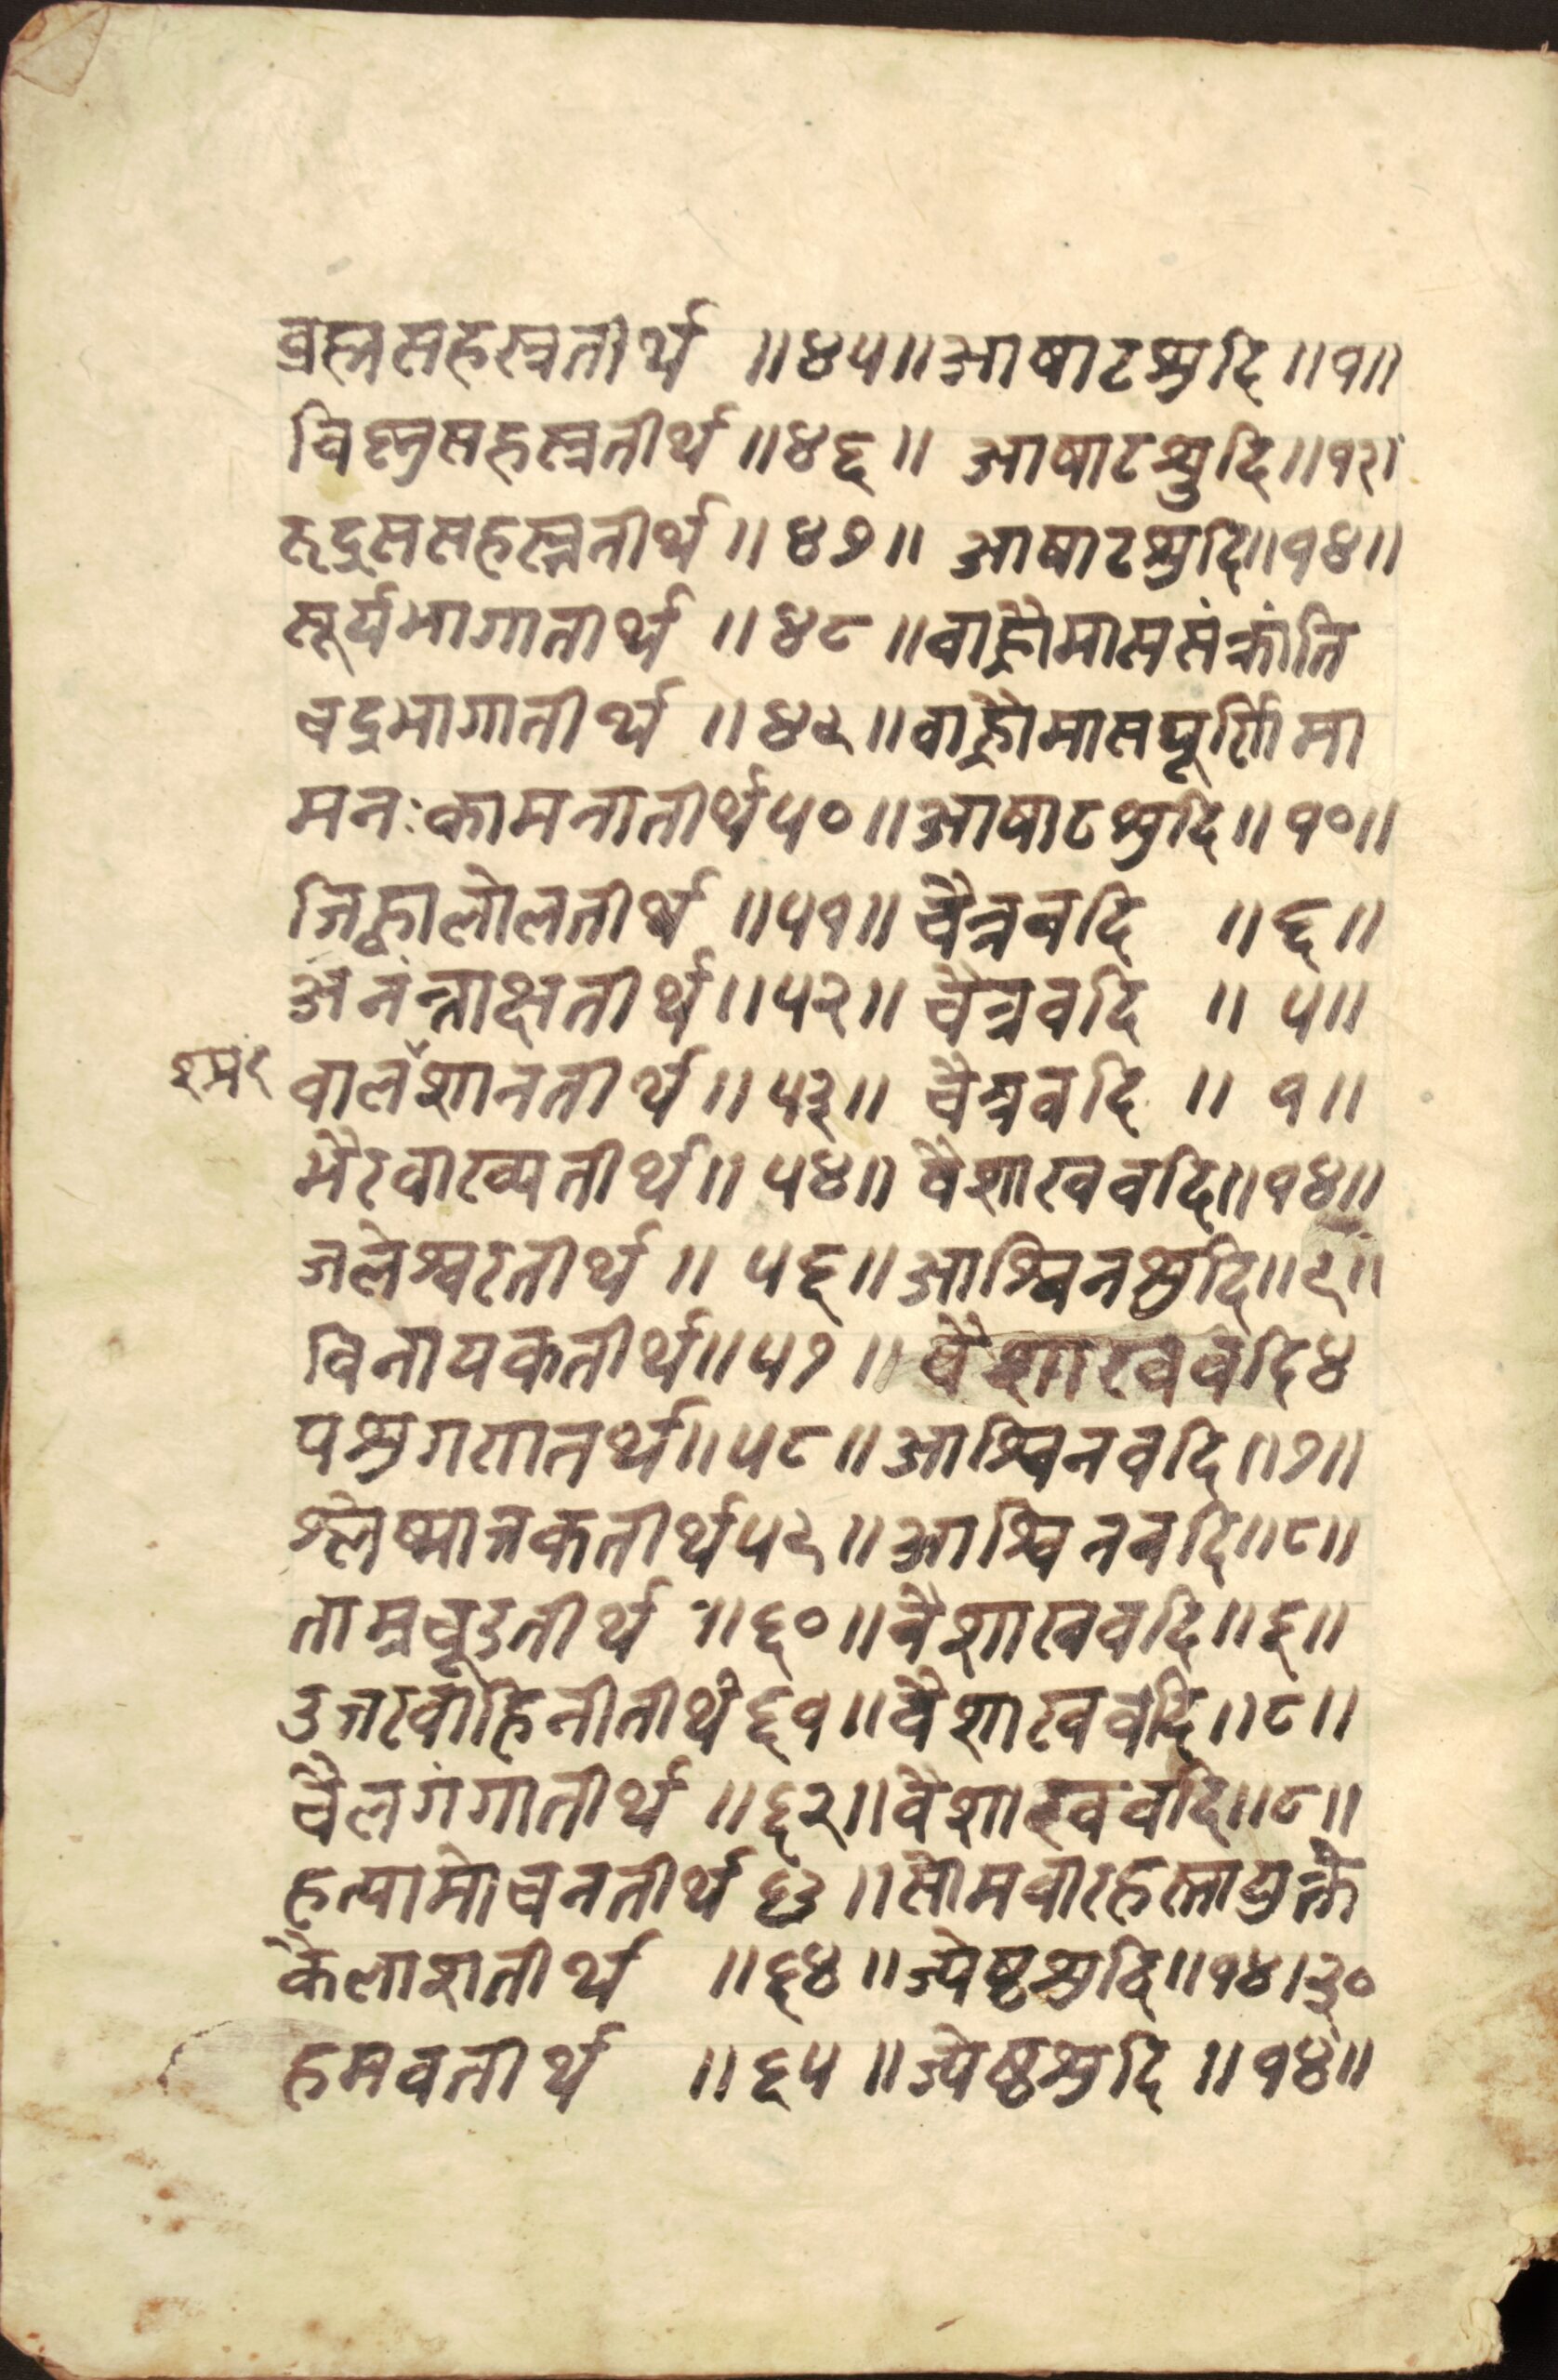 ब्रह्मसहस्रतीर्थ ॥४५॥आषाटशुदि॥१॥
विष्णुसहस्रतीर्थ॥४६॥ आषाटशुदि॥१२।
रूद्रससहस्रतीर्थ॥४७॥ आषाटशुदि॥१४॥
सूर्यभागातीर्थ ॥४८॥वाह्रैमाससंक्रांति
चद्रभागातीर्थ ॥४९॥वाह्रैमासपूर्णिमा
मनःकामनातीर्थ५०॥आषाटशुदि॥१०॥
जिह्वालोलतीर्थ ॥५१॥ चैत्रवदि ॥६॥
अनंन्ताक्षतीर्थ॥५२॥ चैत्रवदि ॥ ५॥
वालँशानतीर्थ॥५३॥ चैत्रवदि ॥ १॥
भैरवाख्यतीर्थ॥५४॥ वैशाखवदि॥१४॥
जलेश्वरतीर्थ॥ ५६॥आश्विनशुदि॥९॥
विनायकतीर्थ॥५७॥ वैशाखवदि४
पशुगगातर्थ॥५८॥आश्विनवदि॥७॥
श्लेष्मान्तकतीर्थ५९॥आश्विनवदि॥८॥
ताम्रचूडतीर्थ ॥६०॥वैशाखवदि॥६॥
उत्तरवाहिनीतीर्थ६१॥वैशाखवदि॥८॥
चैलगंगातीर्थ ॥६२॥वैशाखवदि॥८॥
हत्यामोचनतीर्थ ६३॥सोमवारहस्तायुक्ते
कैलाशतीर्थ ॥६४॥ज्येष्ठशुदि॥१४।३०
हमवतीर्थ ॥६५॥ज्येष्ठशुदि॥१४॥